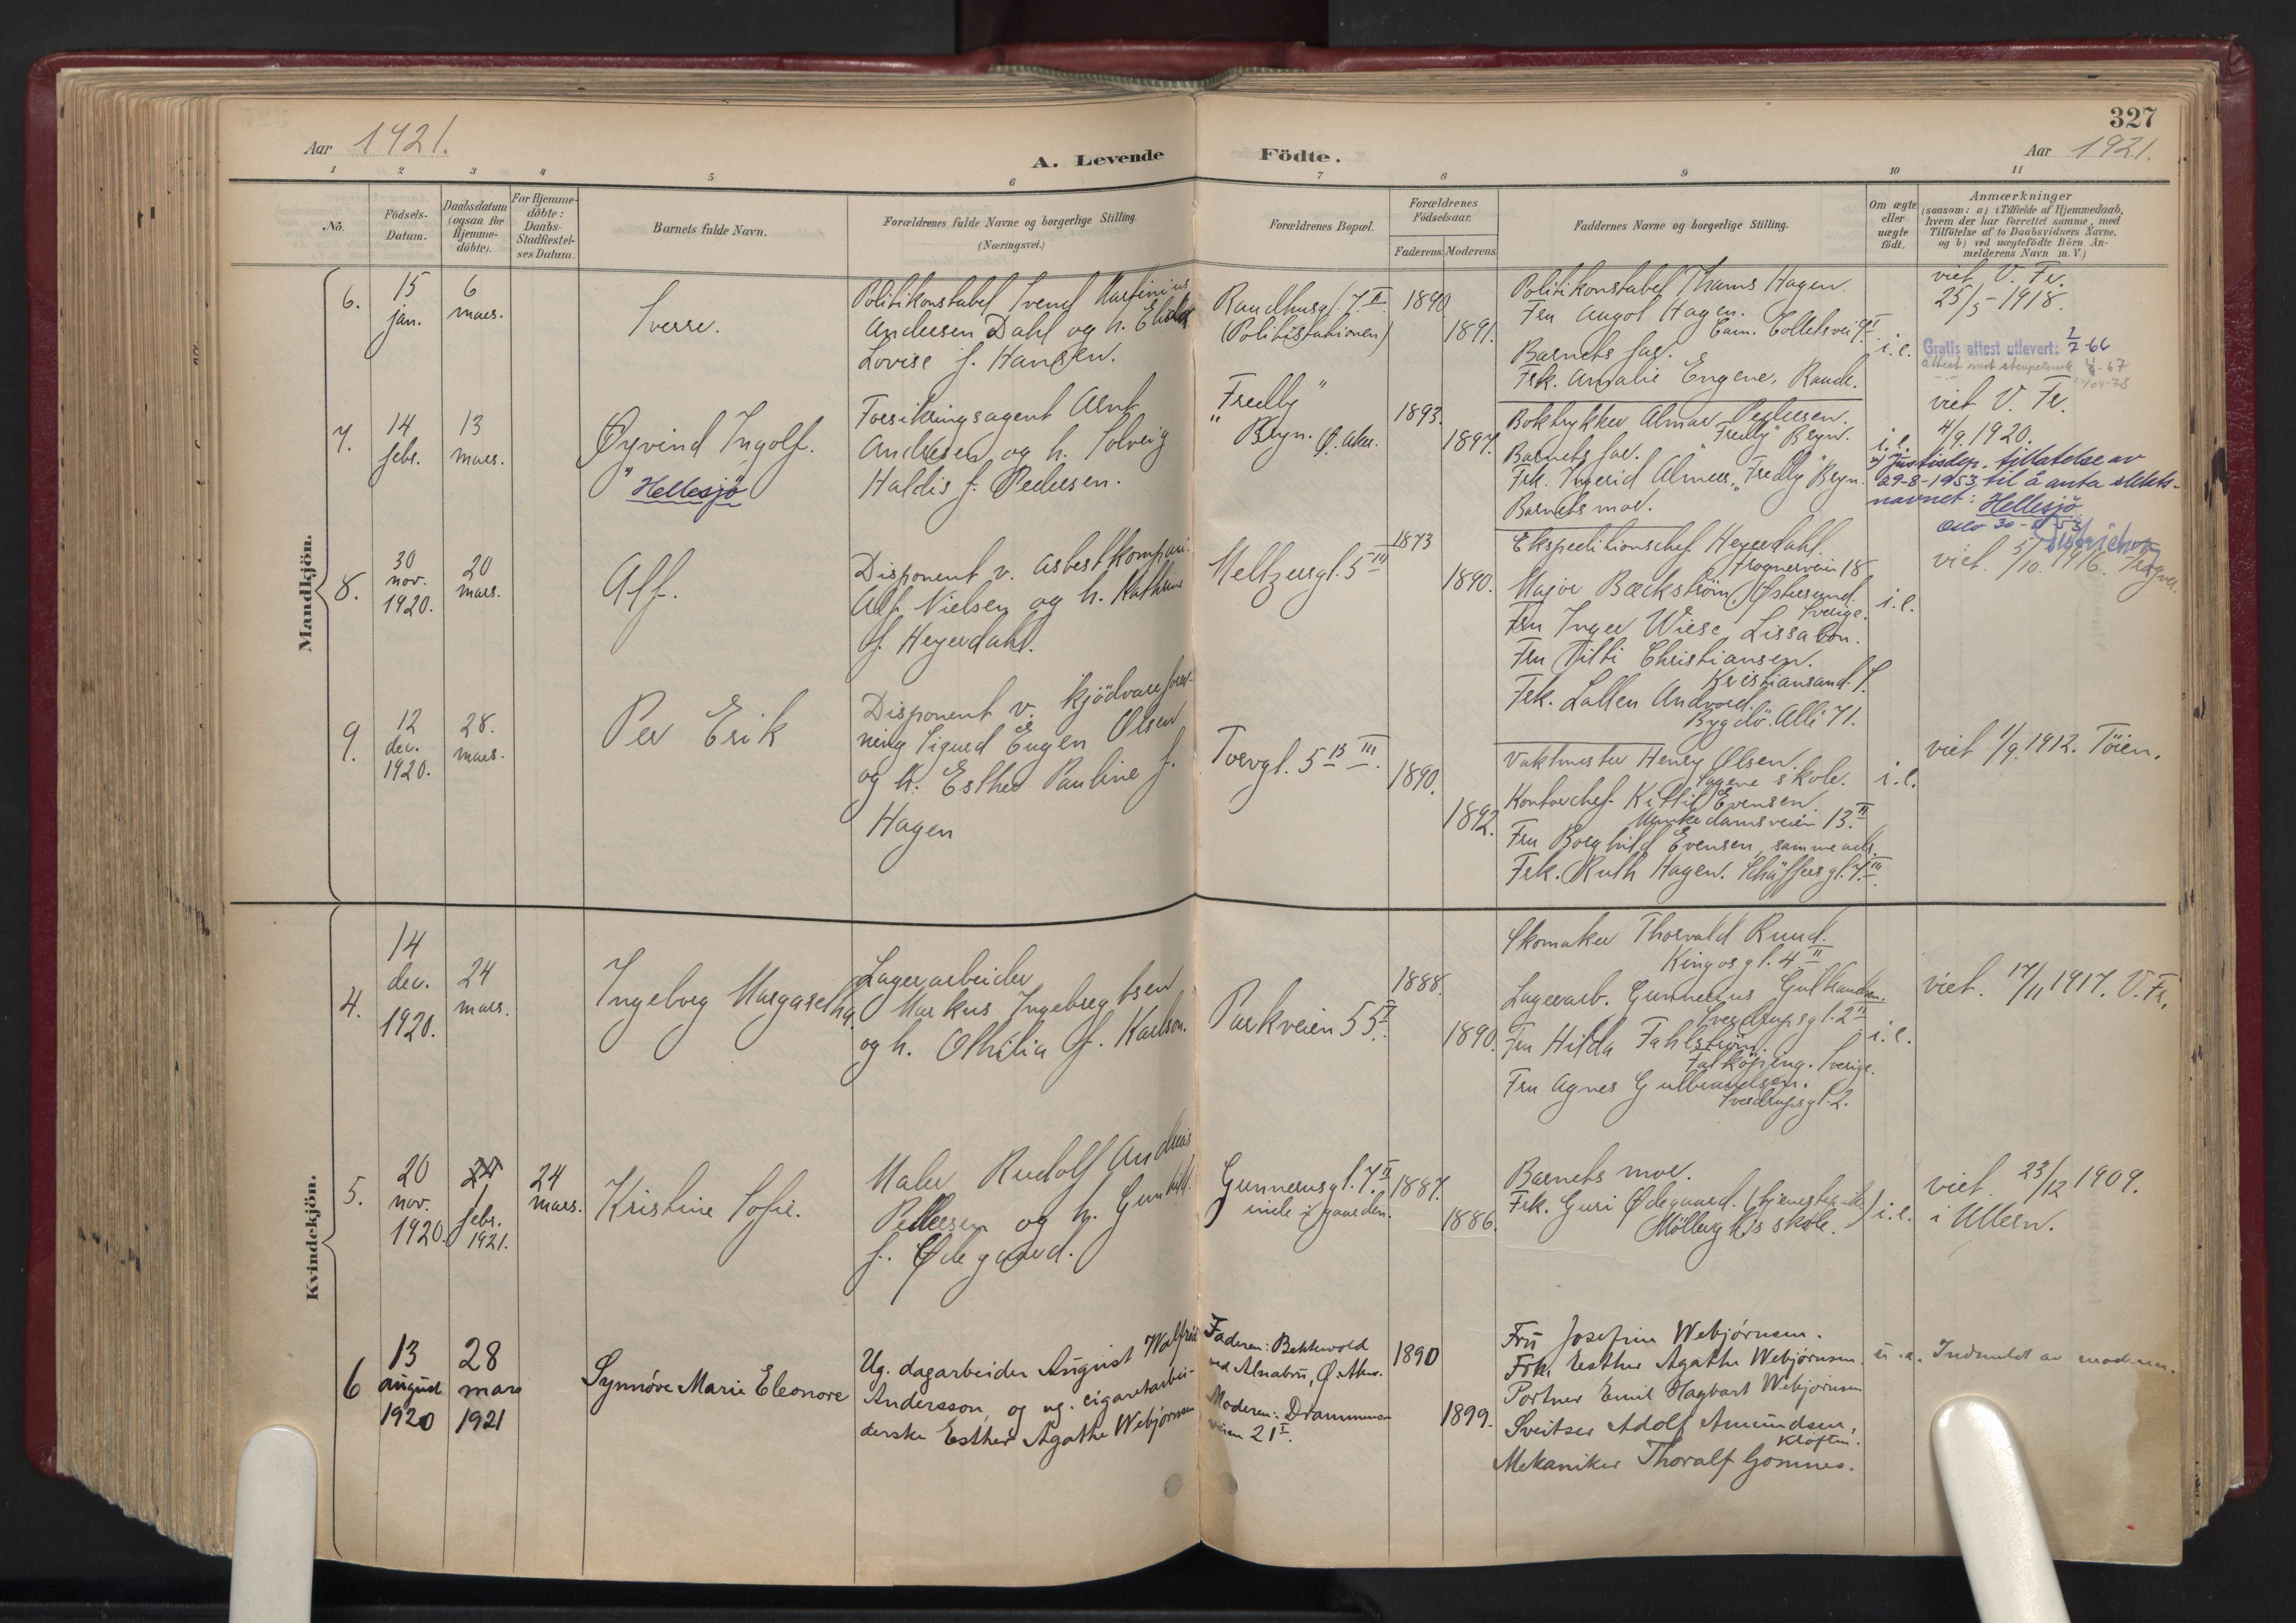 327
Aar 1921.
A. Levende Födte.
Aar 1921.
1 2 3 4 5 6 7 8 9 10 11
No.
Födsels-
Datum.
Daabsdatum
(ogsaa for
Hjemme-
döbte).
For Hjemme-
döbte:
Daabs-
Stadfæstel-
ses Datum.
Barnets fulde Navn.
Forældrenes fulde Navne og borgerlige Stilling.
(Næringsvei.)
Forældrenes Bopæl.
Forældrenes
Födselsaar.
Faderens. Moderens.
Faddernes Navne og borgerlige Stilling.
Om ægte
eller
uægte
födt.
Anmærkninger
(saasom: a) i Tilfælde af Hjemmedaab,
hvem der har forrettet samme, med
Tilföielse af to Daabsvidners Navne,
og b) ved uægtefödte Börn An-
melderens Navn m. V.)
Mandkjön.
6.
15
jan.
6
mars.
Sverre.
Politikonstabel Svend Martinius
Andersen Dahl og h.
Lovise f. Hansen.
Raadhusgt. 7 II
(Politistationen)
1890
1891.
Politikonstabel Thams Hagen.
Fru Augot Hagen.
Cam. Colletsvei 9 II
Barnets far.
Frk. Amalie Engene, Raade.
i. e.
viet V. Fr.
25/5-1918.
Gratis attest utlevert: 1/7-66
7.
14
febr.
13
mars.
Øyvind Ingolf.
"Hellesjö
Forsikringsagent Arnt
Andersen og h. Solveig
Haldis f. Pedersen.
"Fredly"
Bryn. Ø. Aker.
1893.
1897.
Boktrykker Almar Pedersen.
"Fredly" Bryn.
Barnets far.
Frk. Ingerid Almers, "Fredly" Bryn.
Barnets mor.
i. e.
viet V. Fr.
4/9. 1920.
Justisdep. tillatelse av
29-8-1953 til å anta slekts-
navnet: Hellesjö
Oslo 30-
8.
30
nov.
1920.
20
mars.
Alf.
Disponent v. Asbestkompani
Alf Nielsen og h. Kathrine
f. Heyerdahl.
Meltzersgt. 5 III
1873
1890.
Ekspeditionschef Heyerdahl.
Frognerveien 18
Major Bæckström, Østersund.
Sverige.
Fru Inger Wiese, Lissabon.
Fru Titti Christiansen.
Kristiansand S.
Frk. Lallen Andvord.
Bygdö Allé 71.
i. e.
viet. 5/10. 1916. Frogner.
9.
12
dec.
1920.
28.
mars.
Per Erik
Disponent v. kjödvareforret-
ning Sigurd Eugen Olsen
og h. Esther Pauline f.
Hagen
Torvgt. 5 B III.
1890.
1892.
Vaktmester Henry Olsen.
Sagene skole.
Kontorchef Kittil Evensen.
Munkedamsveien 13. II
Fru Borghild Evensen, samme adr.
Frk. Ruth Hagen. Schäffersgt. 7 III.
i. e.
viet 1/9. 1912. Töien.
Kvindekjön.
4.
14
dec.
1920.
24
mars.
Ingeborg Margaretha.
Lagerarbeider
Markus Ingebregtsen
og h. Othilia f. Karlson.
Parkveien 55 I.
1888.
1890.
Skomaker Thorvald Ruud.
Kingosgt. 4 II
Lagerarb. Gunnerius Gulbrandsen.
Sverdrupsgt. 2 II
Fru Hilda Fahlström.
Falköping. Sverige.
Fru Agnes Gulbrandsen.
Sverdrupsgt. 2.
i. e.
viet. 17/11 1917. V. Fr.
5.
20
nov.
1920.
24
febr.
1921.
24
mars.
Kristine Sofie.
Maler Rudolf Andreas
Pettersen og h. Gunhild
f. Ødegaard.
Gunnerusgt. 7. II
inde i gaarden.
1887.
1886.
Barnets mor.
Frk. Guri Ødegaard. (tjenestepike)
Möllergt.s skole.
i. e.
viet. 23/12 1909.
i Ullern.
6
13
august
1920
28
mars
1921
Synnöve Marie Eleonore
Ug. dagarbeider August Walfrid
Andersson, og ug. cigaretarbei-
derske Esther Agathe Webjörnsen
Faderen: Bekkevold
ved Alnabru, Ø. Aker.
Moderen: Drammens-
veien 21 I.
1890
1899.
Fru Josefine Webjörnsen.
Frk. Esther Agathe Webjörnsen.
Portner Emil Hagbart Webjörnsen
Sveitser Adolf Amundsen,
Klöften.
Mekaniker Thoralf Gomnes.
u. e.
Indmeldt av moderen.